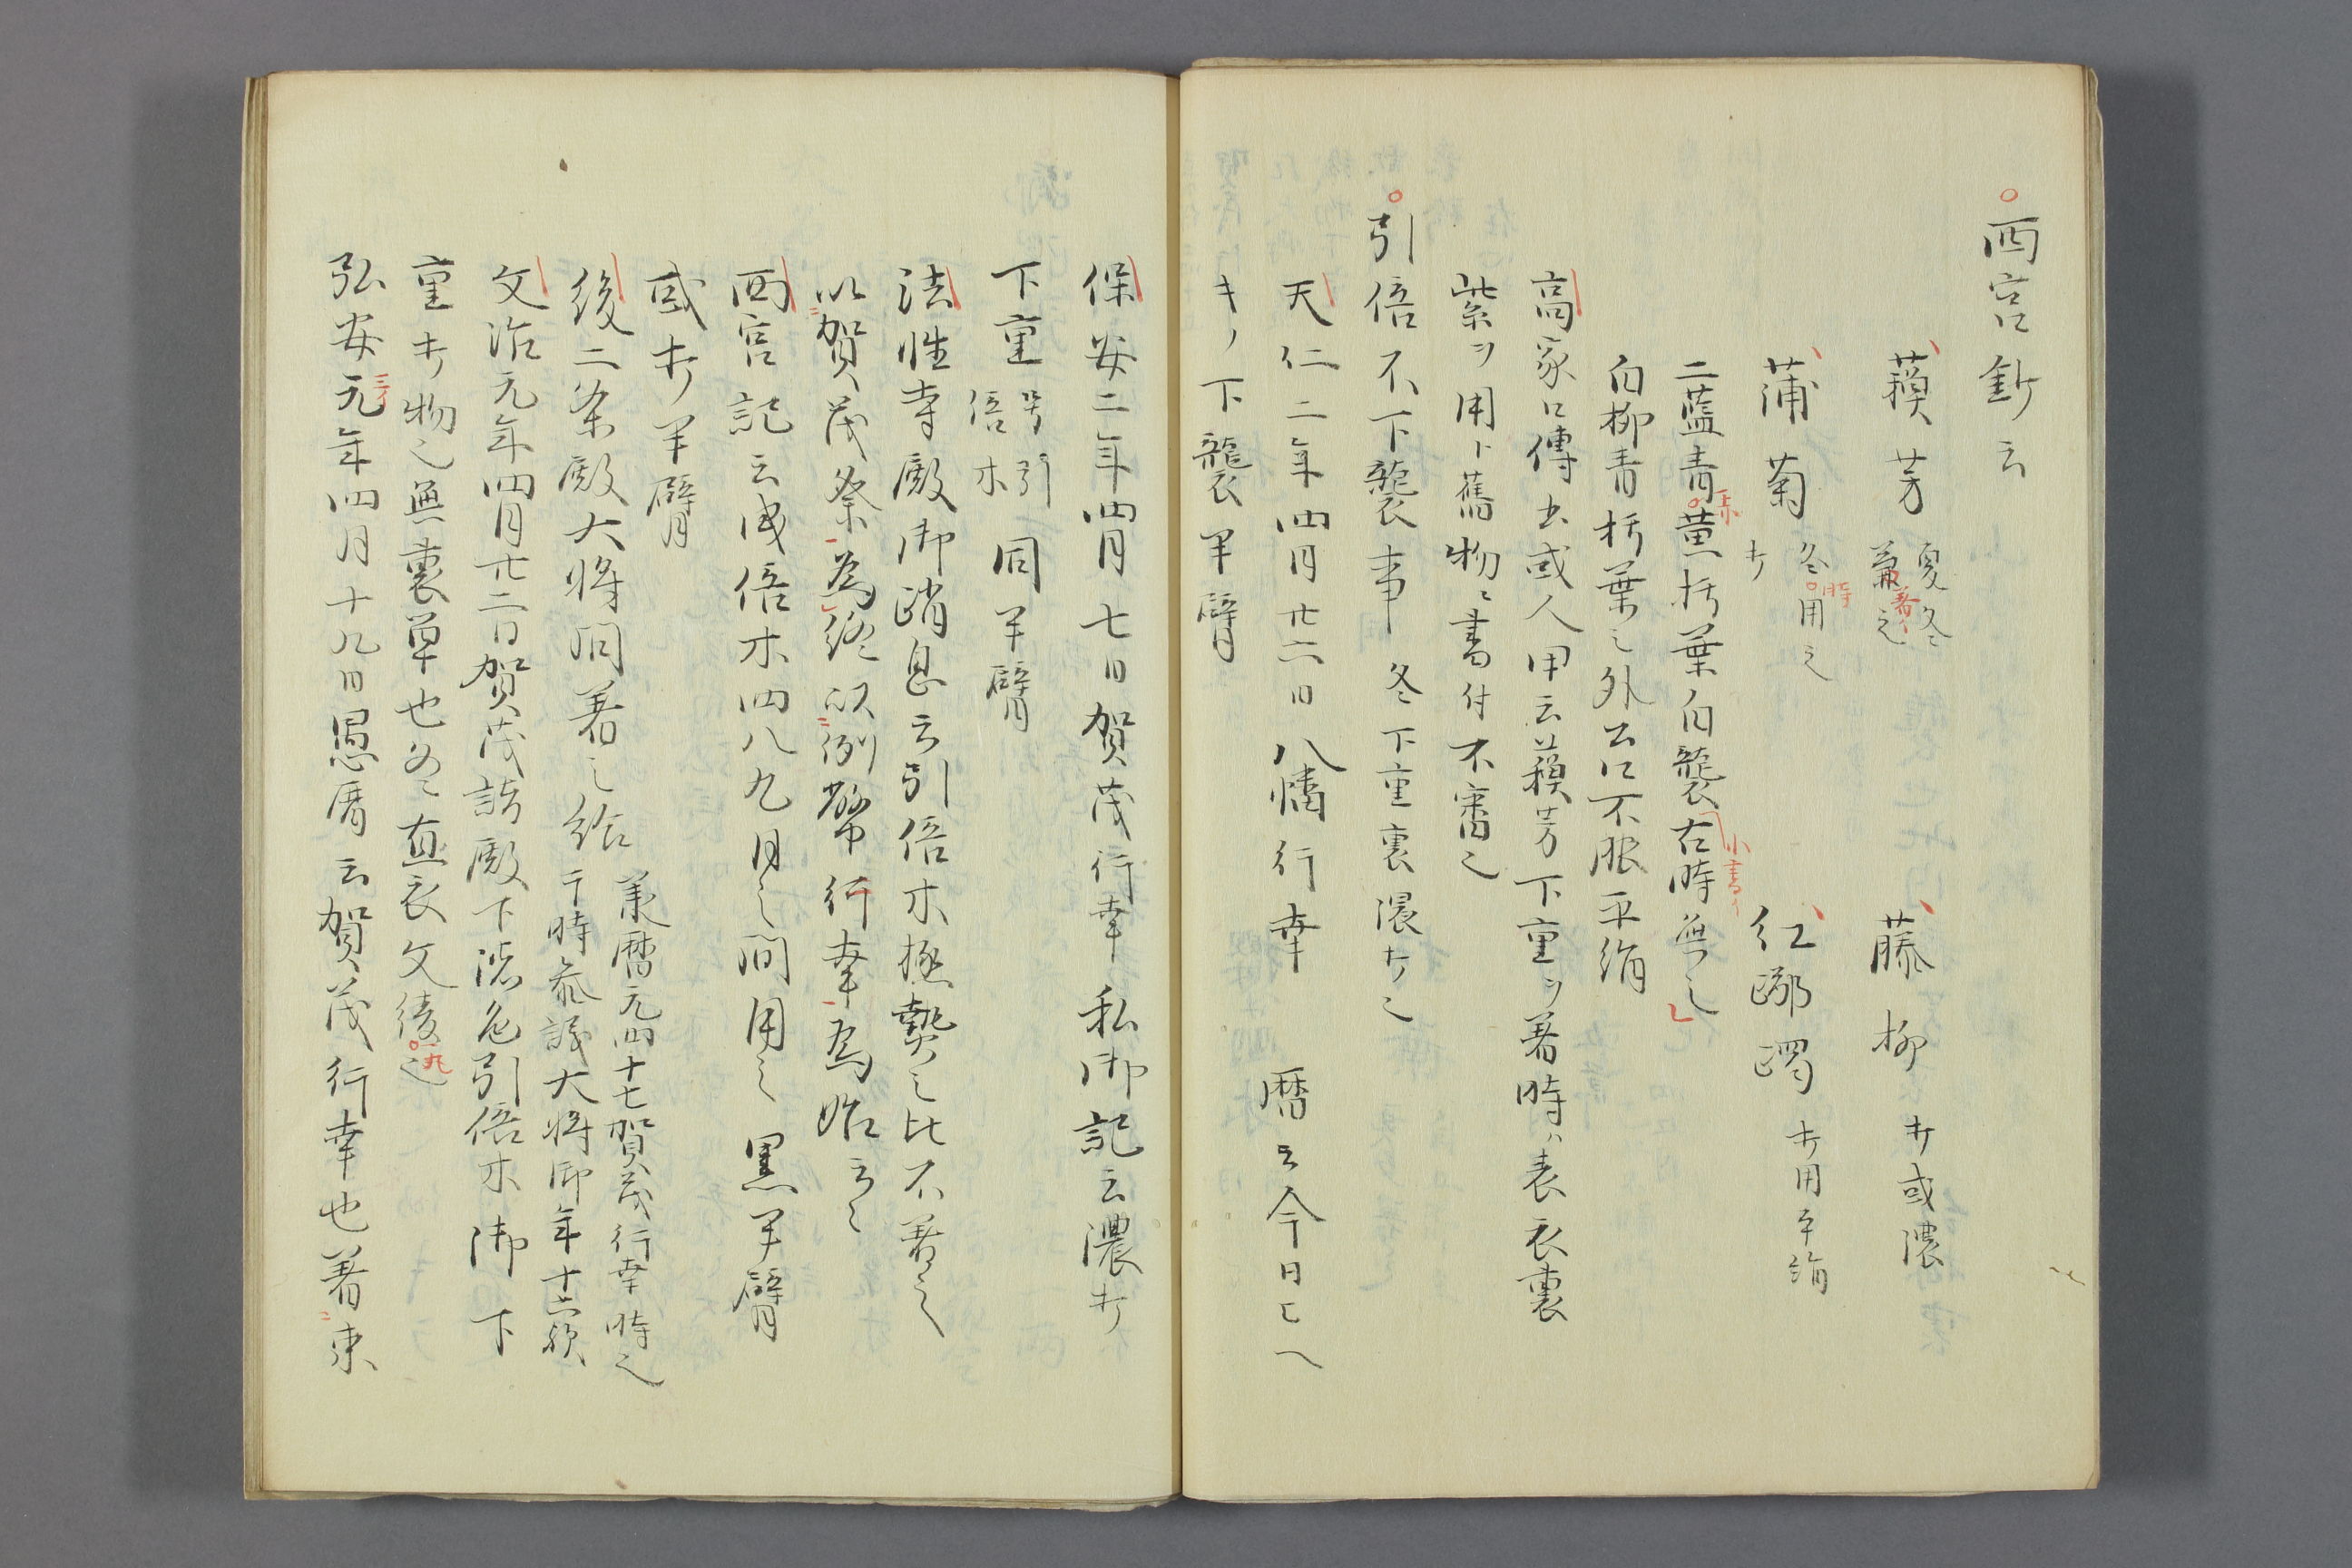 西宮鈔云
蘓芳 夏冬兼着之 藤 柳 オ或濃
蒲萄 冬時用之 オ 紅躑躅 オ用平絹
二藍青黄朽葉白襲 右時無之 小書イ
白柳青朽葉之外云不服平絹
高家口傳云或人甲云蘓芳下重ヲ着時ハ表衣裏
紫ヲ用ト舊物ニ書付不審之
引倍不下襲事 冬下重裏濃オ之
天仁二年四月廿六日八幡行幸 暦云今日ヒヘ
キノ下襲半臂
保安二年四月七日賀茂行幸 私御記云濃オ
下重 号引倍木 同半臂
法性寺殿御消息云引倍木極熱之比不着之
以賀茂祭為終以例幣行幸為始云々
西宮記云浅倍木四八九月之間用之 黒半臂
或オ半臂
後二条殿大将同着之給 承暦元四十七賀茂行幸時之 于時参議大将御年十六歟
文治元年四月廿二日賀茂詣殿下濃色引倍木御下
重オ物之無裏単也冬直衣文綾丸之
弘安元年四月十九日愚暦云賀茂行幸也着束
三イ